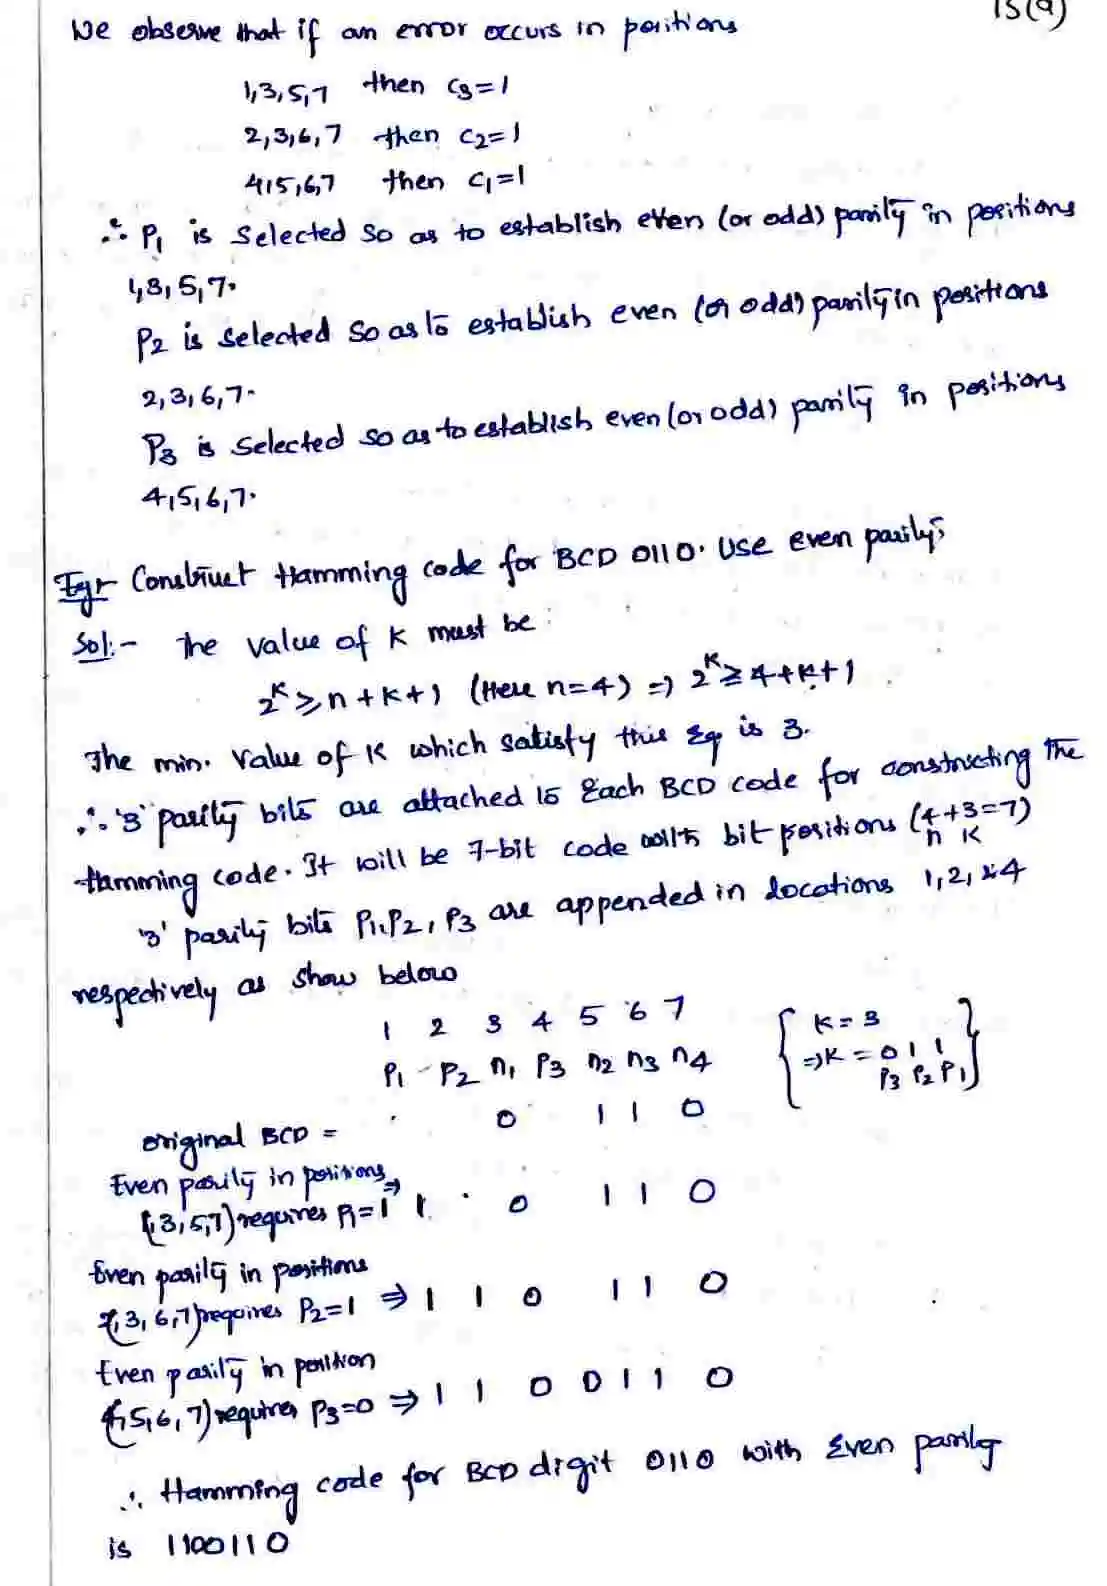 15(a)
We observe that if an error occurs in positions
1,3,5,7 then C3=1
2,3,6,7 then C2=1
4,5,6,7 then C1=1
∴ P1 is selected so as to establish even (or odd) parity in positions
1,3,5,7.
P2 is selected so as to establish even (or odd) parity in positions
2,3,6,7.
P3 is selected so as to establish even (or odd) parity in positions
4,5,6,7.
Eg:- Construct Hamming code for BCD 0110. Use even parity;
Sol:- The value of K must be :
2^K ≥ n+K+1 (Here n=4) ⇒ 2^K ≥ 4+K+1
The min. value of K which satisfy this Eq is 3.
∴ '3' parity bits are attached to Each BCD code for constructing the
Hamming code. It will be 7-bit code with bit positions (4+3=7)
n K
'3' parity bits P1,P2,P3 are appended in locations 1,2,&4
respectively as show below
1 2 3 4 5 6 7
P1 - P2 n1 P3 n2 n3 n4
{ K=3
⇒K = 0 1 1
P3 P2 P1 }
original BCD = 0 1 1 0
Even parity in positions
(1,3,5,7) requires P1=1 ⇒ 1 0 1 1 0
Even parity in positions
(2,3,6,7) requires P2=1 ⇒ 1 1 0 1 1 0
Even parity in position
(4,5,6,7) requires P3=0 ⇒ 1 1 0 0 1 1 0
∴ Hamming code for BCD digit 0110 with Even parity
is 1100110